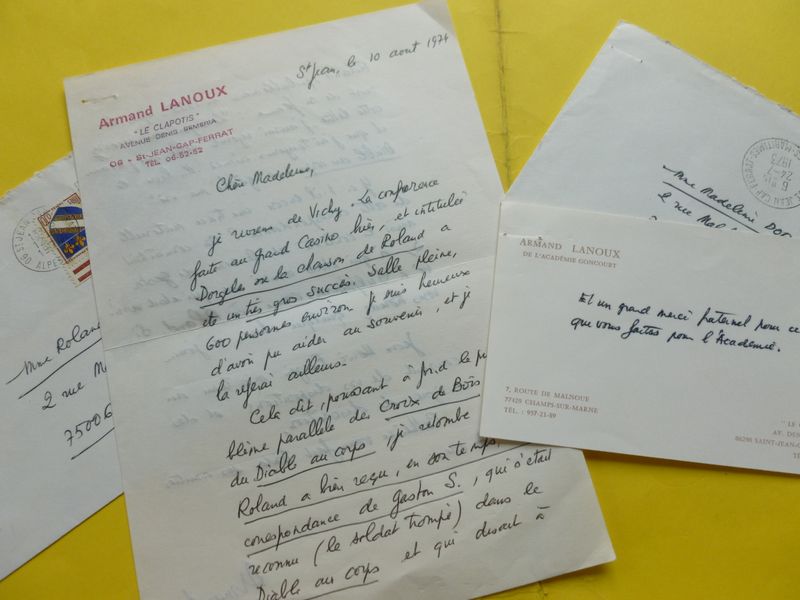 St Jean, le 10 août 1974
Armand LANOUX
"LE CLAPOTIS"
AVENUE DENIS SEMERIA
06 - St-JEAN-CAP-FERRAT
TEL 06-52-52
Chère Madeleine,
je reviens de Vichy. La conférence
faite au grand Casino hier, et intitulée
Dorgelès ou la chanson de Roland a
eu un très gros succès. Salle pleine,
600 personnes environ. Je suis heureux
d'avoir pu aider au souvenir, et je
la referai ailleurs.
Cela dit, poussant à fond le pro
blème parallèle des Croix de Bois
du Diable au corps, je retombe
Roland a bien reçu, en son temps,
correspondance de Gaston S., qui s'était
reconnu (le soldat trompé) dans le
Diable au corps et qui disait à
Mme Roland
2 rue M
75006
ST JEAN
06
ALPE
Mme Madeleine DOR
2 rue
ST JEAN CAP FERRAT
6
24-
1973
ARMAND LANOUX
DE L'ACADÉMIE GONCOURT
Et un grand merci fraternel pour ce
que vous faites pour l'Académie.
7, ROUTE DE MALNOUE
77420 CHAMPS-SUR-MARNE
TÉL. : 957-21-89
"LE C
AV. DEN
06290 SAINT-JEAN-C
TÉ